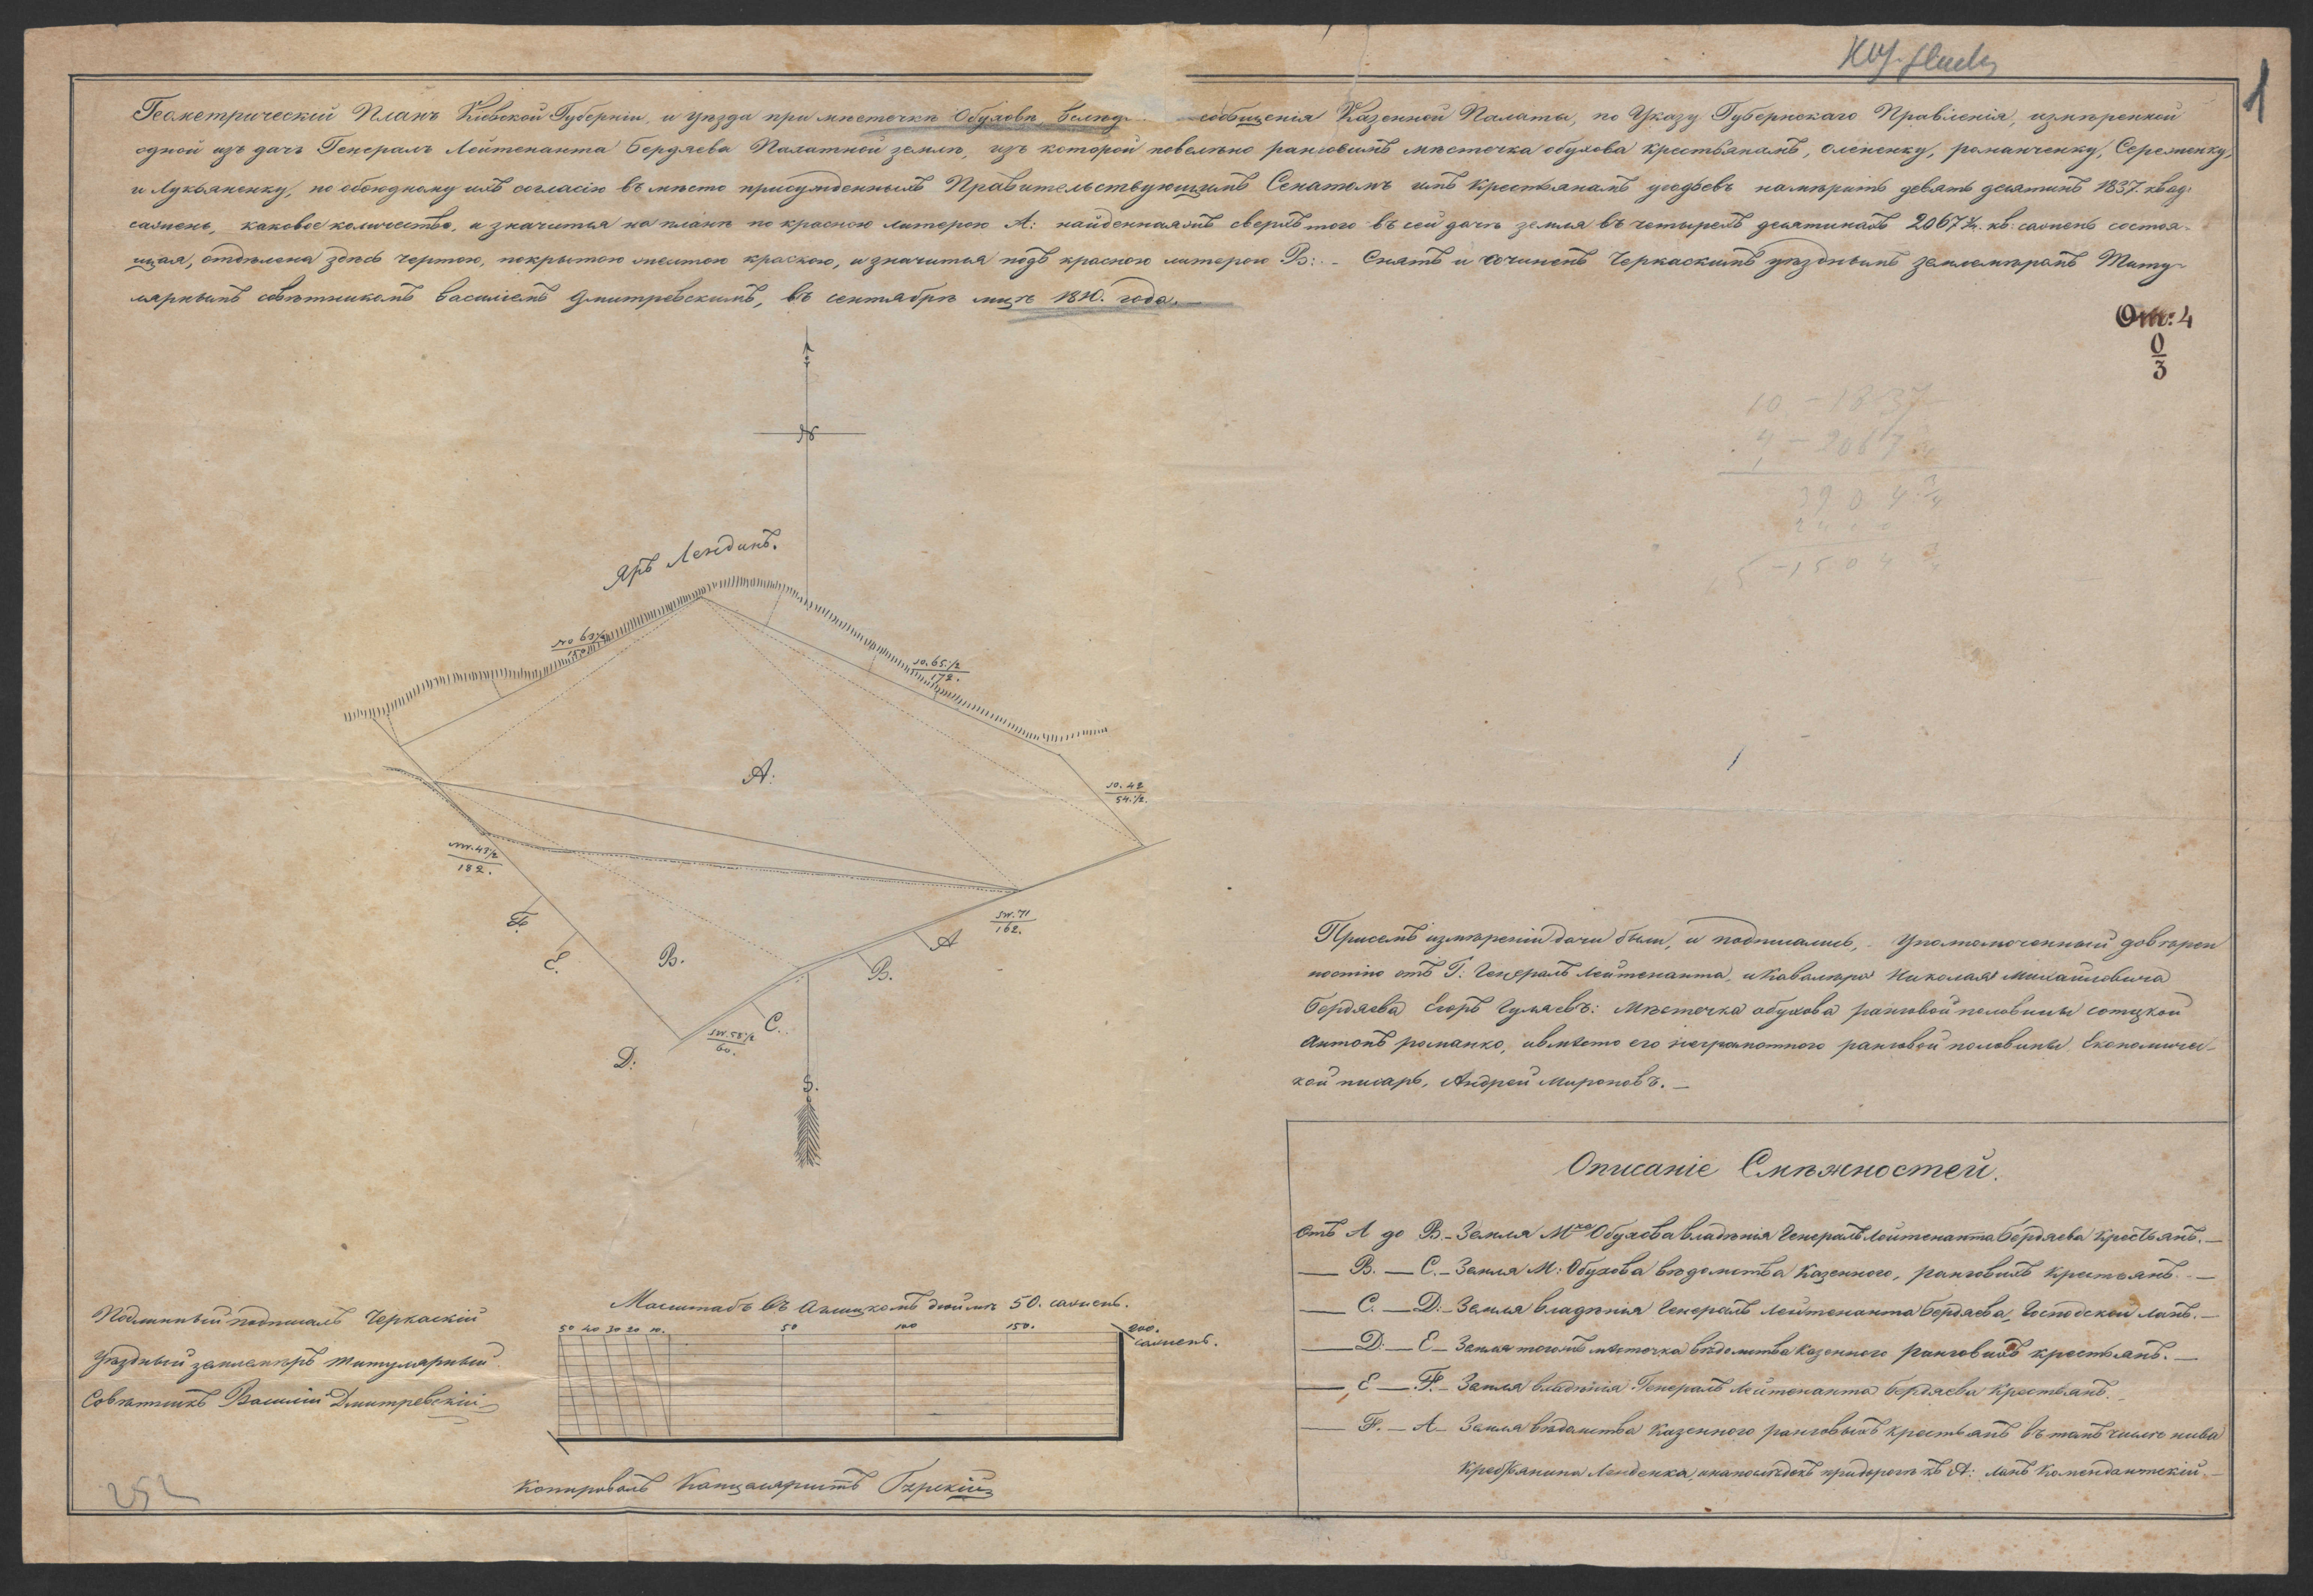 1
Геометрическій Планъ Кіевской Губерніи, и уезда при местечке Обухове, сообщенія Казенной Палаты, по Указу Губернскаго Правленія, измеренной
одной изъ дачъ Генералъ Лейтенанта Бердяева Палатной земле, изъ которой повелено ранговымъ местечка обухова крестьянамъ, оленску, романченку, Сереженку,
и Лукьяненку, по обоюдному ихъ согласію въ место присужденныхъ Правительствующимъ Сенатомъ имъ крестьянамъ угодьевъ намерить девять десятинъ 1837. квад:
сажень, каковое количество, и значится на плане по красною литерою А: найденная сверхъ того въ сей даче земля въ четырехъ десятинахъ 2067 3/4. кв: сажень состоя-
щая, отделена здесь чертою, покрытою желтою краскою, и значится подъ красною литерою В: - Снятъ и сочиненъ Черкаскимъ уезднымъ землемеромъ Титу-
лярнымъ советникомъ василіемъ Дмитревскимъ, въ сентябре 1810. года.
От: 4
0/3
10 - 1837
4 - 2067 3/4
3904 3/4
15 - 1504 3/4
N
Яръ Лендинъ.
150
so. 65 1/2
172.
А:
so. 42
54. 1/2.
nw. 49 1/2
182.
F.
sw. 71
162.
А
E.
В.
В.
C.
sw. 58 1/2
60.
D:
S.
Присемъ измереніи дачи были, и подписались, уполномоченный доверен
ностію отъ Г: Генералъ Лейтенанта, и Кавалера Николая Михаиловича
Бердяева Егоръ местечка обухова ранговой половины сотцкой
Антонъ романко, а вместо его неграмотного ранговой половины Економичес-
кой писарь, Андрей Мироновъ.
Описаніе Смежностей.
Отъ А до В. - Земля М. Обухова владенія Генералъ Лейтенанта Бердяева крестьянъ.
В. — С. - Земля М: Обухова ведомства Казенного, ранговыхъ крестьянъ.
С. — D: - Земля владенія Генералъ Лейтенанта Бердяева, Господской ланъ.
D: — Е - Земля тогожъ местечка ведомства казенного ранговыхъ крестьянъ.
Е — F. - Земля владенія Генералъ Лейтенанта Бердяева крестьянъ.
F. — А - Земля ведомства казенного ранговыхъ крестьянъ въ томъ числе нива
Крестьянина Ленденка, а напоследокъ придороге къ А: ланъ Комендантскій.
Подлинный подписалъ Черкаскій
Уездный землемеръ титулярный
Советникъ Василій Дмитревскій
Масштабъ Въ Аглицкомъ дюйме 50. сажень.
50 40 30 20 10. 50 100 150. 200.
сажень.
Копировалъ Канцеляристъ
252